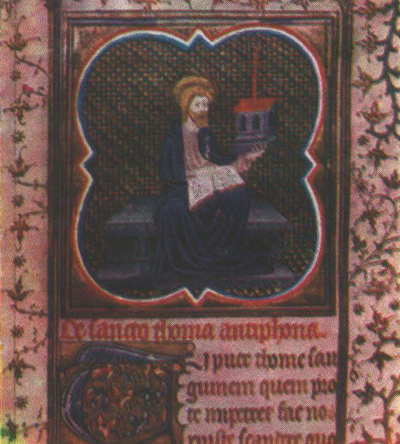 De sancto thoma antiphona.
TU per thome san
guinem quem pro
te impendit fac nos
scandere quo